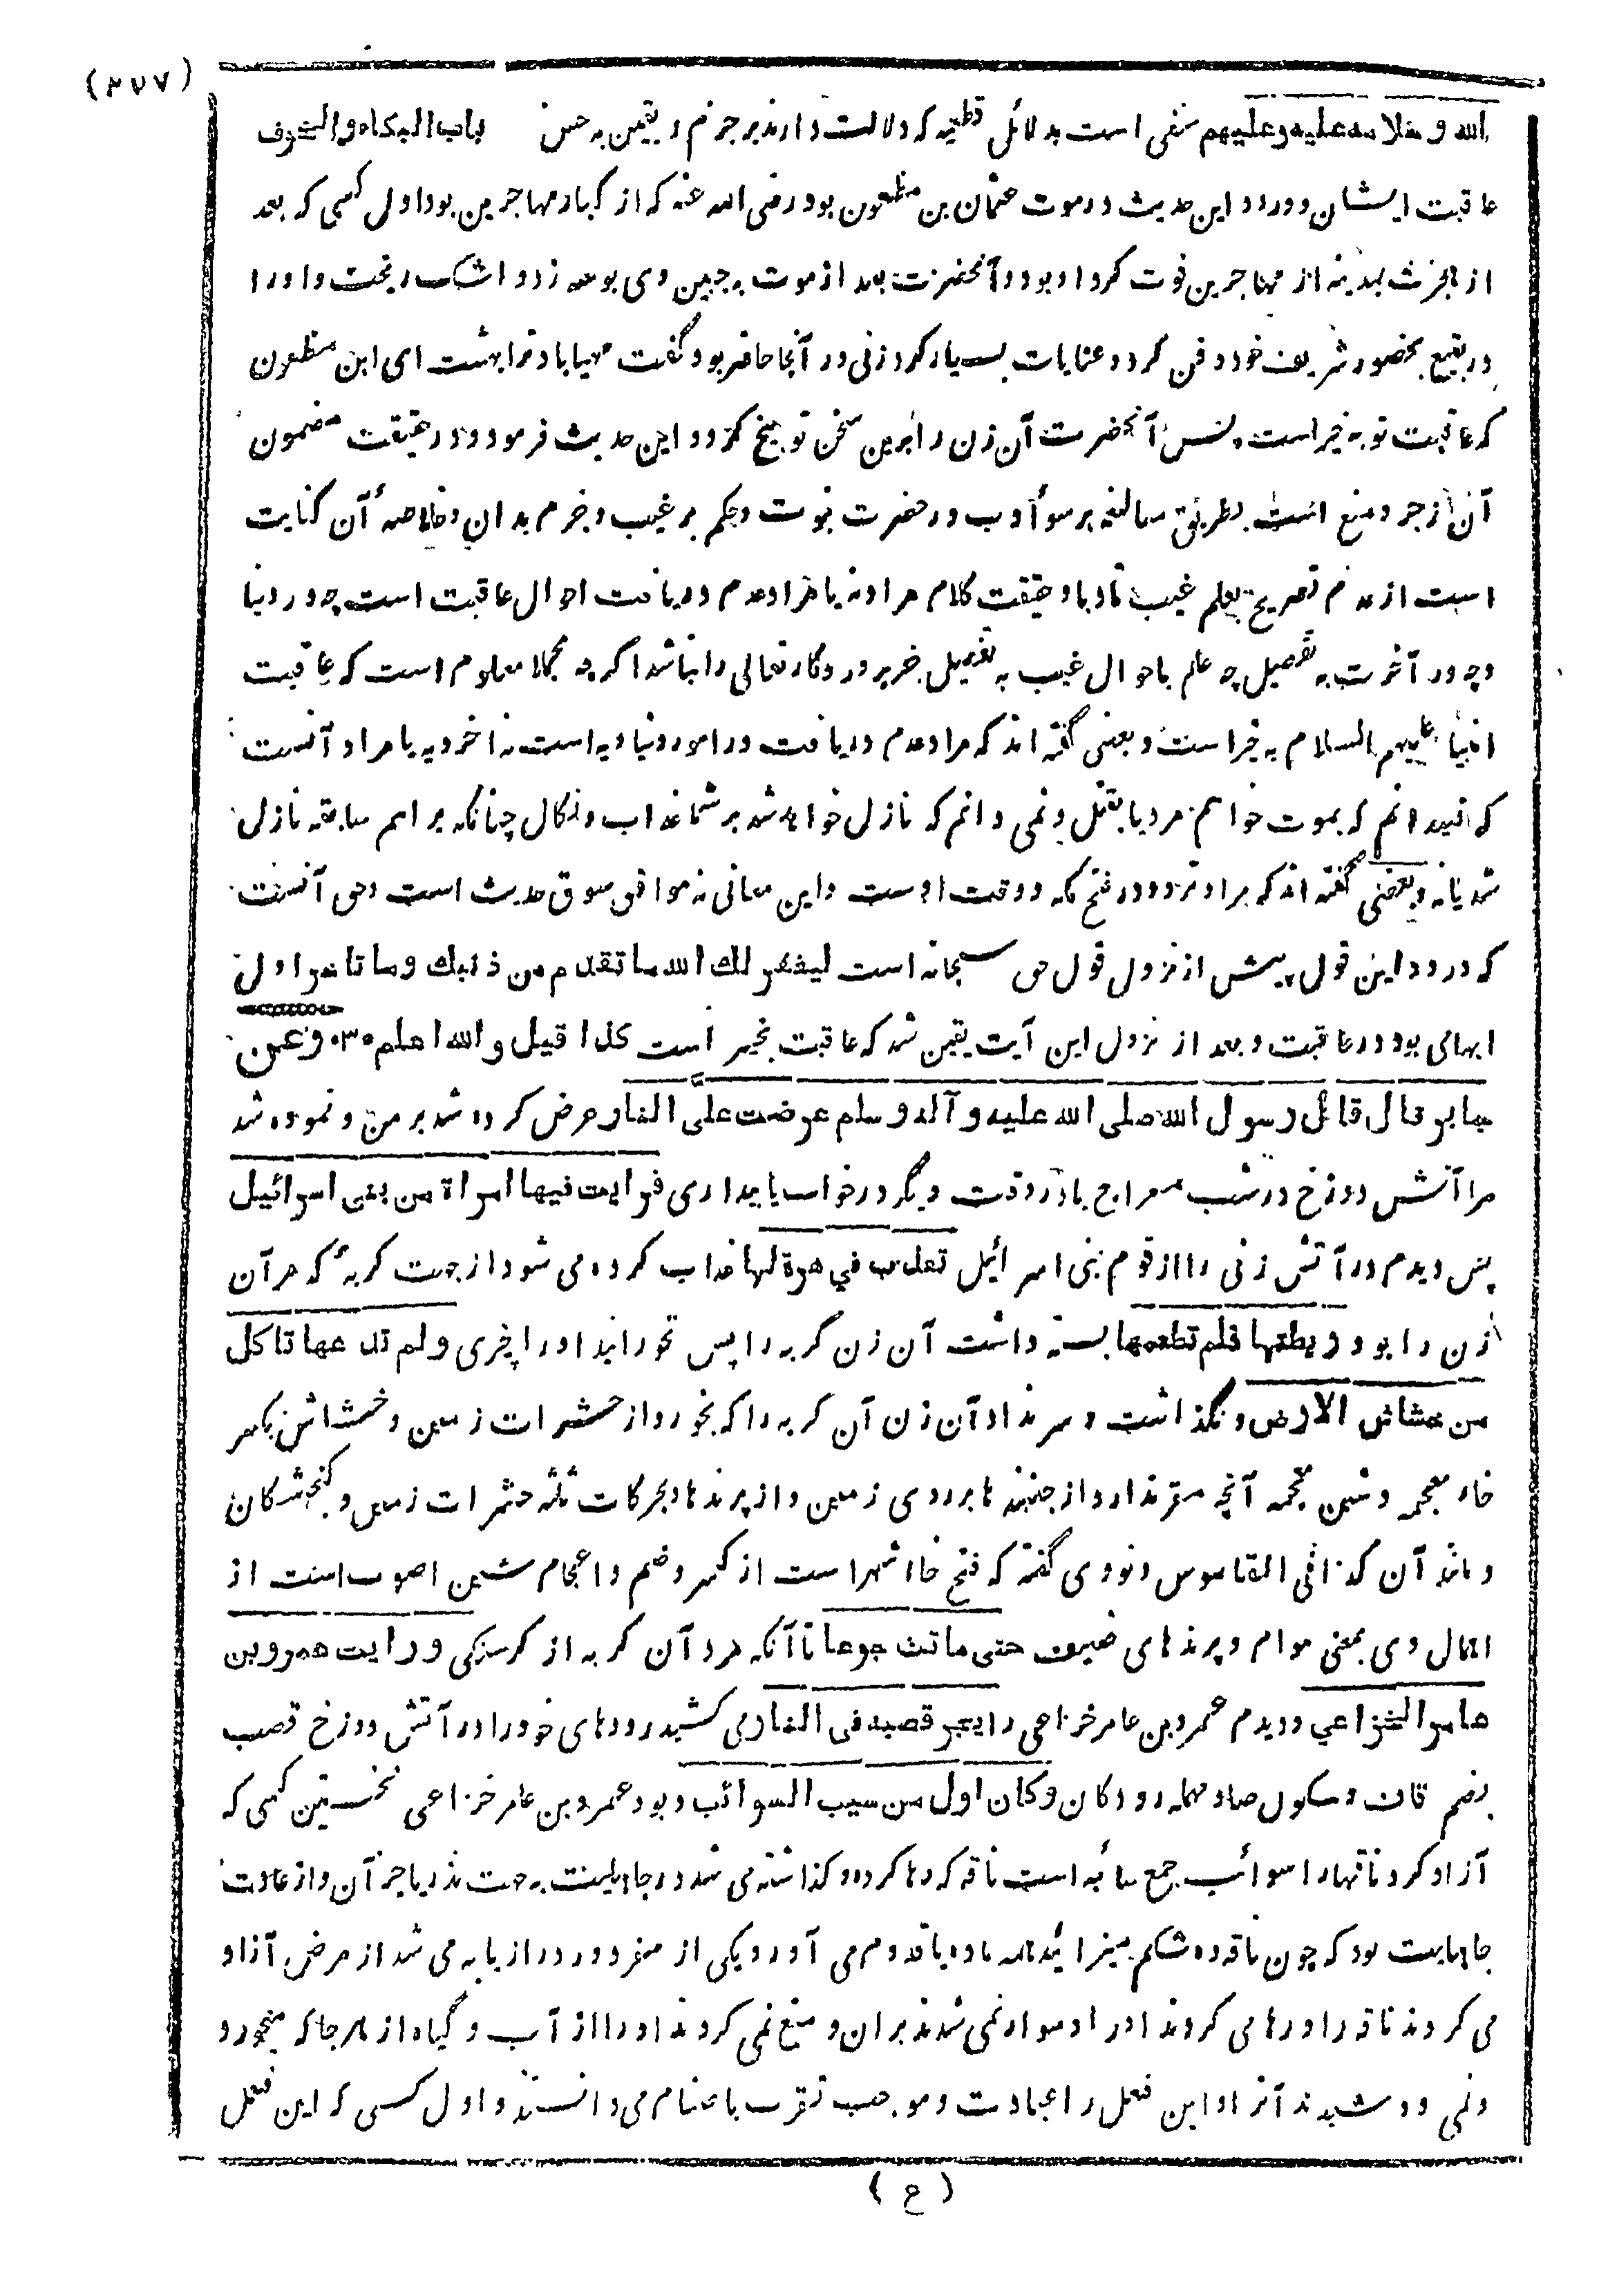 (۲۷۷)
الله و سلامه علیه وعلیهم منفی است بدلائل قطعیه که دلالت دارند بر جزم و یقین به حسن باب البکاء والخوف
عاقبت ایشان و ورود این حدیث در موت عثمان بن مظعون بود رضی الله عنه که از کبار مهاجرین بود اول کسی که بعد
از هجرت بمدینه از مهاجرین فوت کرد او بود و آنحضرت بعد از موت بر جبین وی بوسه زد و اشک ریخت و او را
در بقیع بحضور شریف خود دفن کرد و عنایات بسیار کرد زنی در آنجا حاضر بود گفت مهیا باد ترا بهشت ای ابن مظعون
که عاقبت تو به خیر است پس آنحضرت آن زن را برین سخن توبیخ کرد و این حدیث فرمود و در حقیقت مضمون
آن زجر و منع است بطریق مبالغه بر سوأ ادب در حضرت نبوت و حکم بر غیب و جزم بدان و خلاصهٔ آن کنایت
است از عدم تصریح بعلم غیب تادبا و حقیقت کلام مراد نه یا مراد عدم دریافت احوال عاقبت است چه در دنیا
و چه در آخرت به تفصیل چه علم باحوال غیب به تفصیل جز پروردگار تعالی را نباشد اگرچه مجملا معلوم است که عاقبت
انبیأ علیهم السلام به خیر است و بعضی گفته اند که مراد عدم دریافت در امور دنیاویه است نه اخرویه یا مراد آنست
که نمیدانم که بموت خواهم مرد یا بقتل و نمی دانم که نازل خواهد شد بر شما عذاب و نکال چنانکه بر امم سابقه نازل
شد یا نه و بعضی گفته اند که مراد تردد در فتح مکه و وقت اوست و این معانی نه موافق سوق حدیث است و حق آنست
که درود این قول پیش از نزول قول حق سبحانه است لیغفر لك الله ما تقدم من ذنبك وما تاخر اول
ابهامی بود در عاقبت و بعد از نزول این آیت یقین شد که عاقبت بخیر است کذا قیل و الله اعلم ۰۳۰ وعن
جابر قال قال رسول الله صلی الله علیه و آله وسلم عرضت علیّ النار عرض کرده شد بر من و نموده شد
مرا آتش دوزخ در شب معراج یا در وقت دیگر در خواب یا بیداری فرایت فیها امراة من بنی اسرائیل
پس دیدم در آتش زنی را از قوم بنی اسرائیل تعذب في هرة لها عذاب کرده می شود از جهت گربهٔ که مر آن
زن را بود ربطتها فلم تطعمها بسته داشت آن زن گربه را پس نخورانید او را چیزی ولم تدعها تاکل
من خشاش الارض و نگذاشت و سر نداد آن زن آن گربه را که بخورد از حشرات زمین و خشاش بکسر
خاء معجمه و شین معجمه آنچه مقر ندارد از جنبنده ها بر روی زمین و از پرندها و بحرکات ثلثه حشرات زمین و گنجشکان
و مانند آن کذا فی القاموس و نووی گفته که فتح خا اشهر است از کسر و ضم و اعجام شین اصوب است از
اهمال وی بمعنی هوام و پرندهای ضعیف حتی ماتت جوعا تا آنکه مرد آن گربه از گرسنگی و رایت عمرو بن
عامر الخزاعي و دیدم عمرو بن عامر خزاعی را یجر قصبه فی النار می کشید رودهای خود را در آتش دوزخ قصب
بضم قاف و سکون صاد مهمله رودگان وکان اول من سیب السوائب و بود عمرو بن عامر خزاعی نخستین کسی که
آزاد کرد ناقها را سوائب جمع سائبه است ناقه که رها کرده و گذاشته می شد در جاهلیت به جهت نذر یا جز آن و از عادت
جاهلیت بود که چون ناقه ده شکم میزائید همه ماده یا قدوم می آورد یکی از سفر دور دراز یا به می شد از مرض آزاد
می کردند ناقه را و رها می کردند او را و سوار نمی شدند بر ان و منع نمی کردند او را از آب و گیاه از هر جا که میخورد
و نمی دوشیدند آنرا و این فعل را عبادت و موجب تقرب باصنام می دانستند و اول کسی که این فعل
(ع)